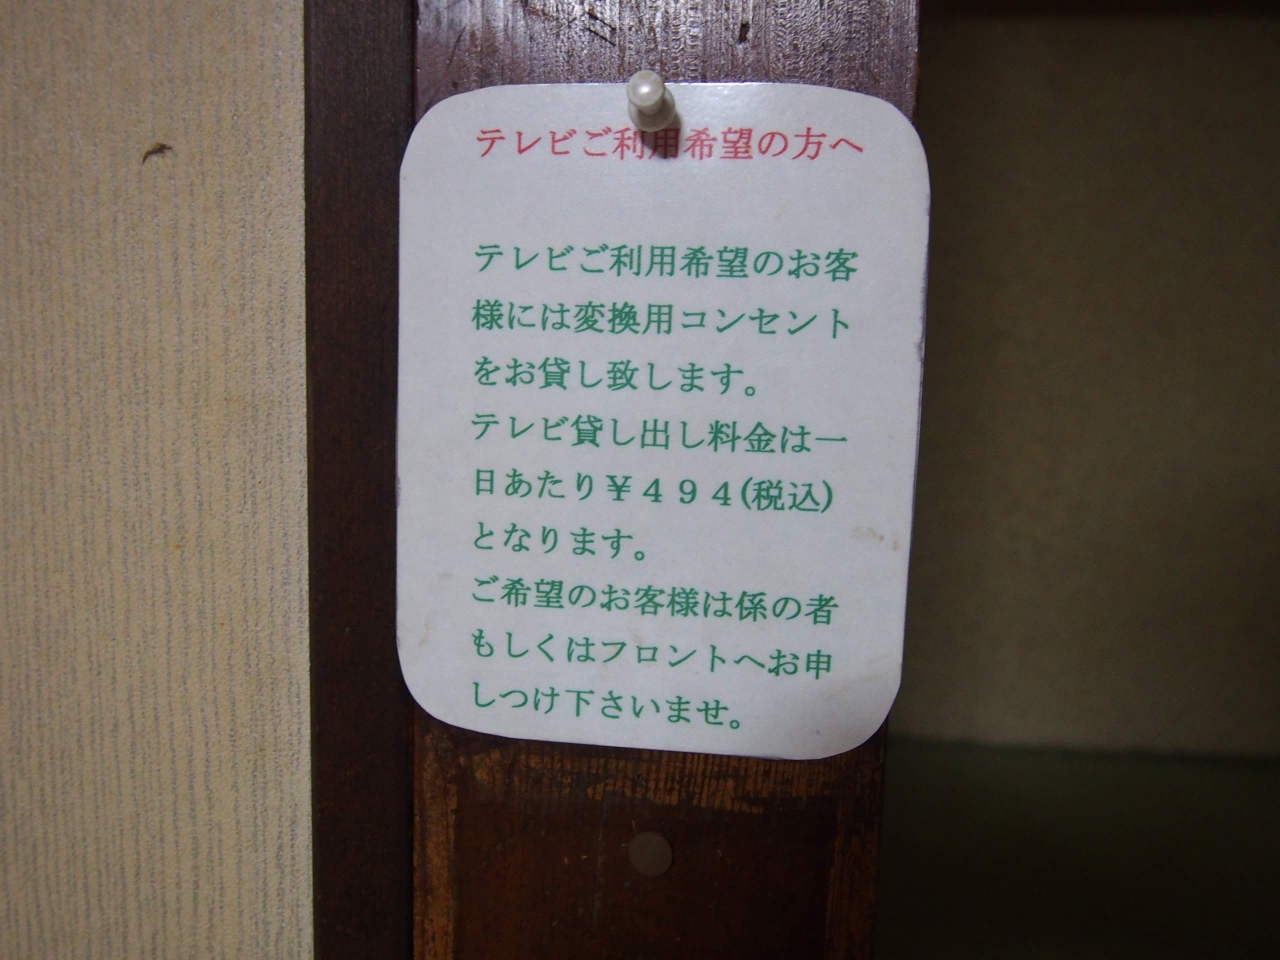 テレビご利用希望の方へ
テレビご利用希望のお客
様には変換用コンセント
をお貸し致します。
テレビ貸し出し料金は一
日あたり￥４９４(税込)
となります。
ご希望のお客様は係の者
もしくはフロントへお申
しつけ下さいませ。